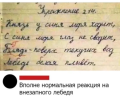 Упражнение 274.
Князь у синя моря ходит,
С синя моря глаз не сводит;
Глядь - поверх текучих вод
Лебедь белая плывёт.
Вполне нормальная реакция на
внезапного лебедя